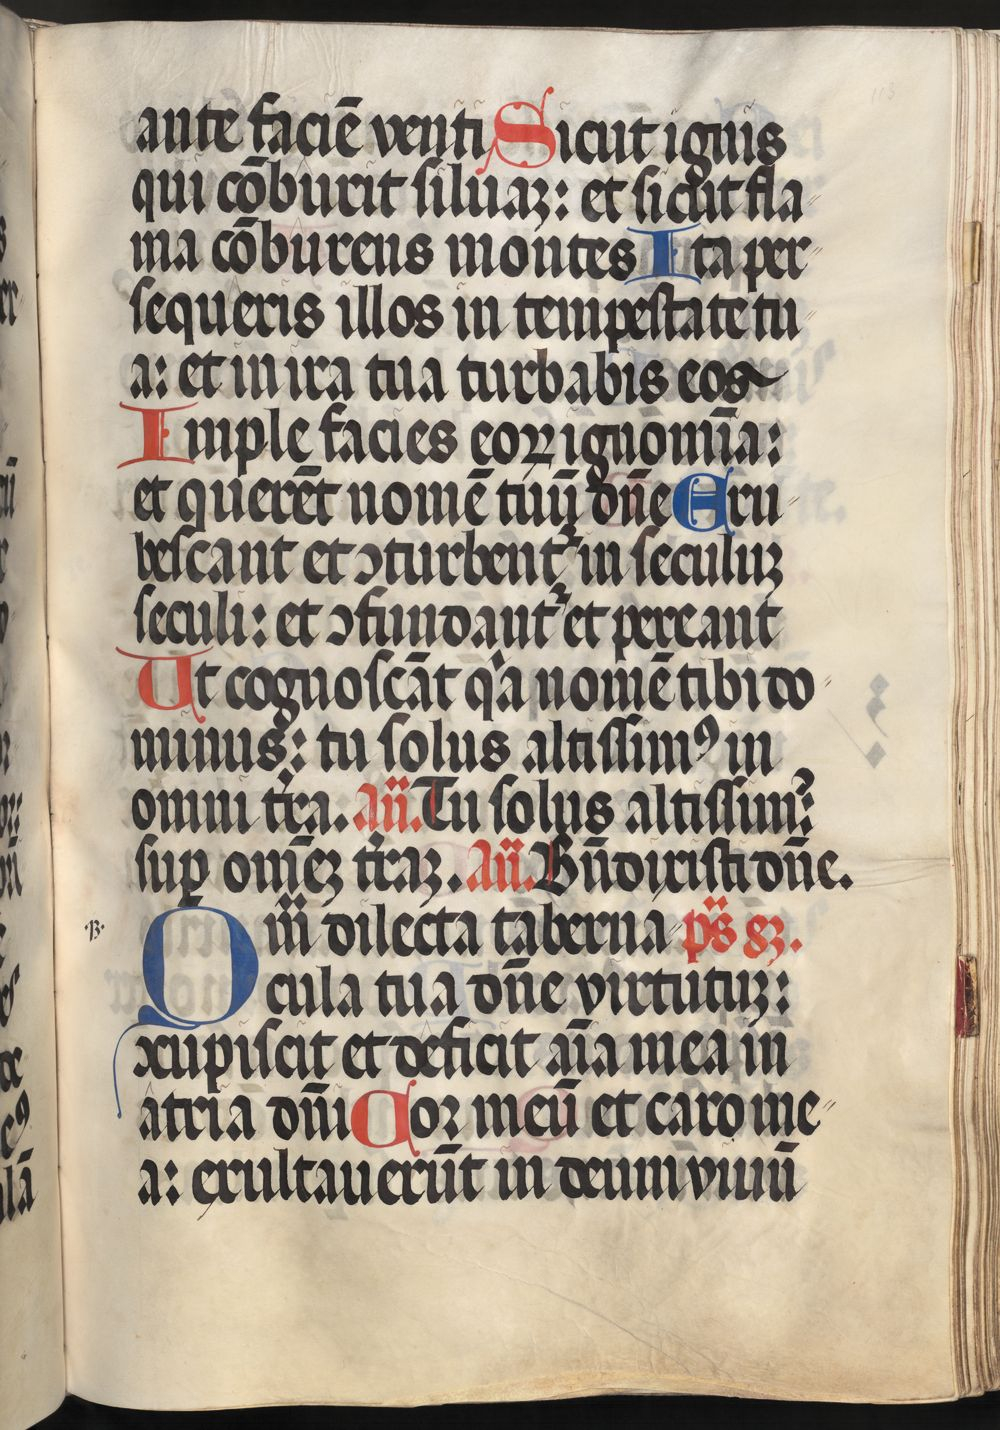 113
ante faciē venti Sicut ignis
qui cōburit siluaꝫ: et sicut fla
ma cōburens montes Ita per
sequeris illos in tempestate tu
a: et in ira tua turbabis eos
Imple facies eoꝝ ignomīa:
et querēt nomē tuū dn̄e Eru
bescant et ↄturbentᷣ in seculuꝫ
seculi: et ↄfundantᷣ et pereant
Ut cognoscāt qͥa nomē tibi do
minus: tu solus altissimꝰ in
omni tr̄a. An̄. Tu solus altissimꝰ
suꝑ omēꝫ tr̄aꝫ. An̄. Bn̄dixisti dn̄e.
·B· Qm̄ dilecta taberna ps̄ 83.
cula tua dn̄e virtutuꝫ:
xupiscit et deficit aīa mea in
atria dn̄i Cor meū et caro me
a: exultauerūt in deum viuū